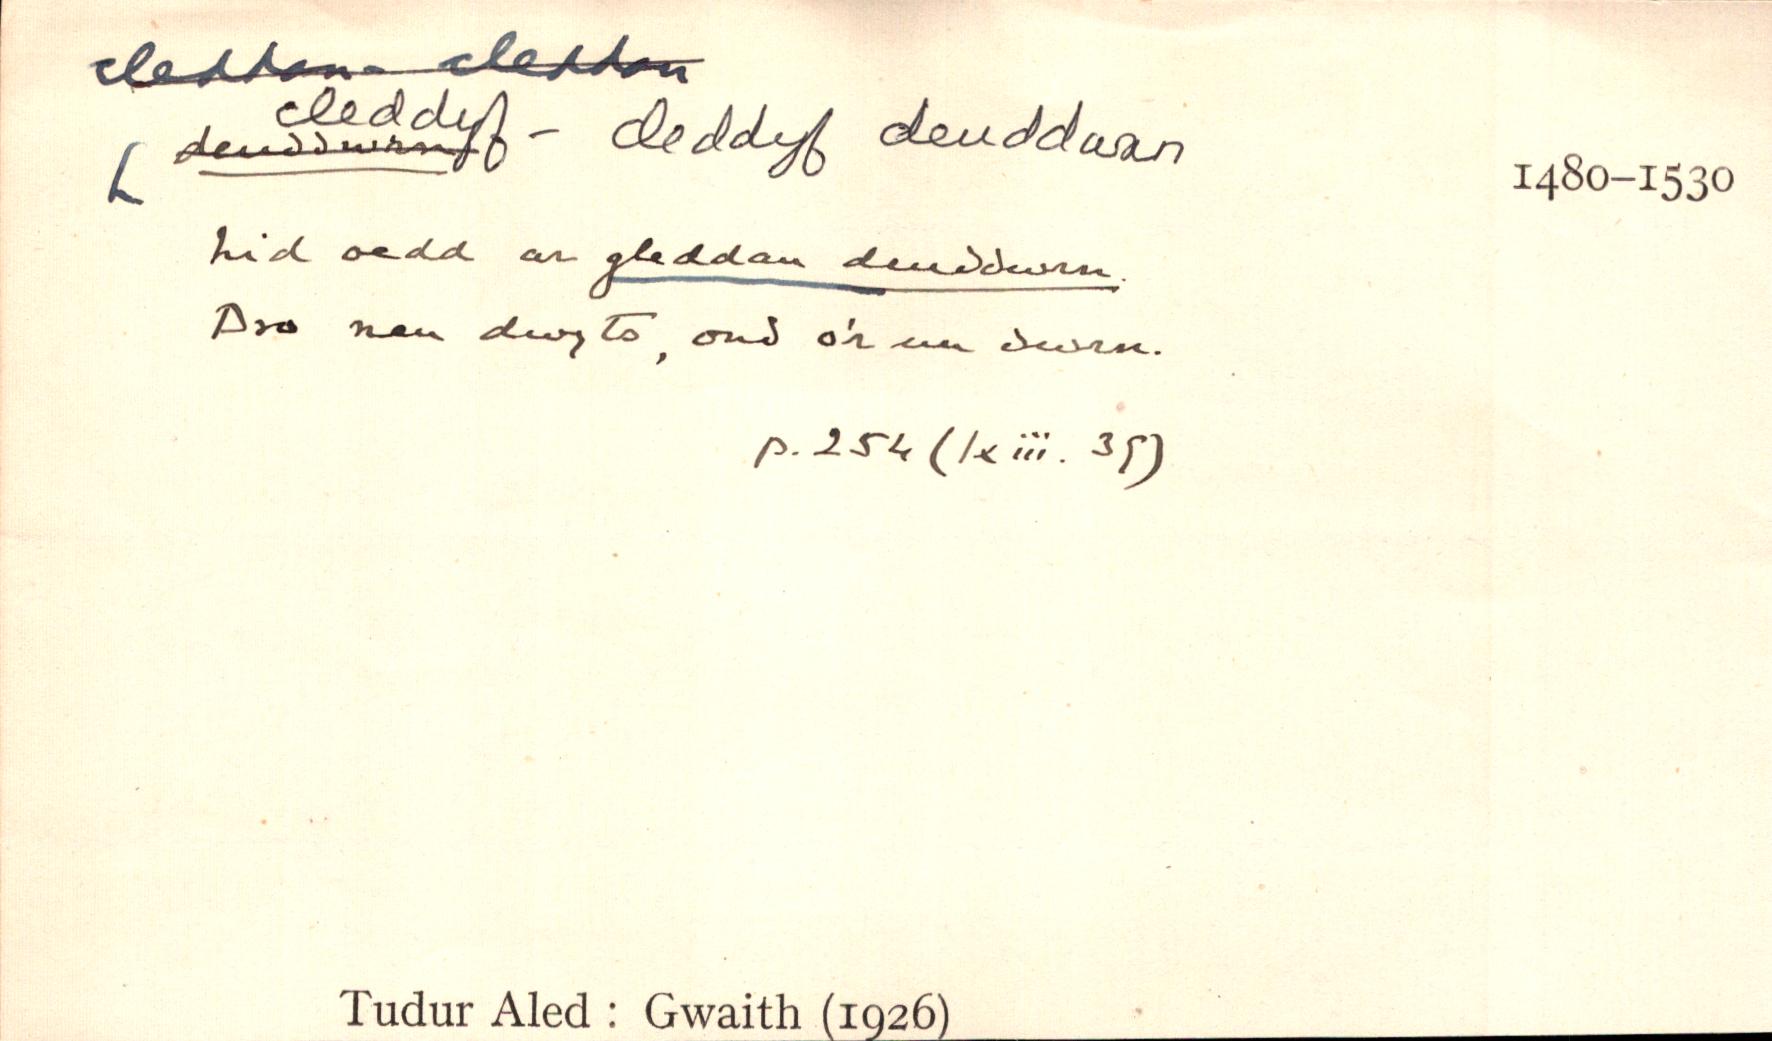 cleddau - cleddau
cleddyf - cleddyf deuddwrn
deuddwrn
1480–1530
Lid oedd ar gleddau deuddwrn.
Dro neu dwyto, ond o'r un ddwrn.
p. 254 (lxiii. 35)
Tudur Aled : Gwaith (1926)